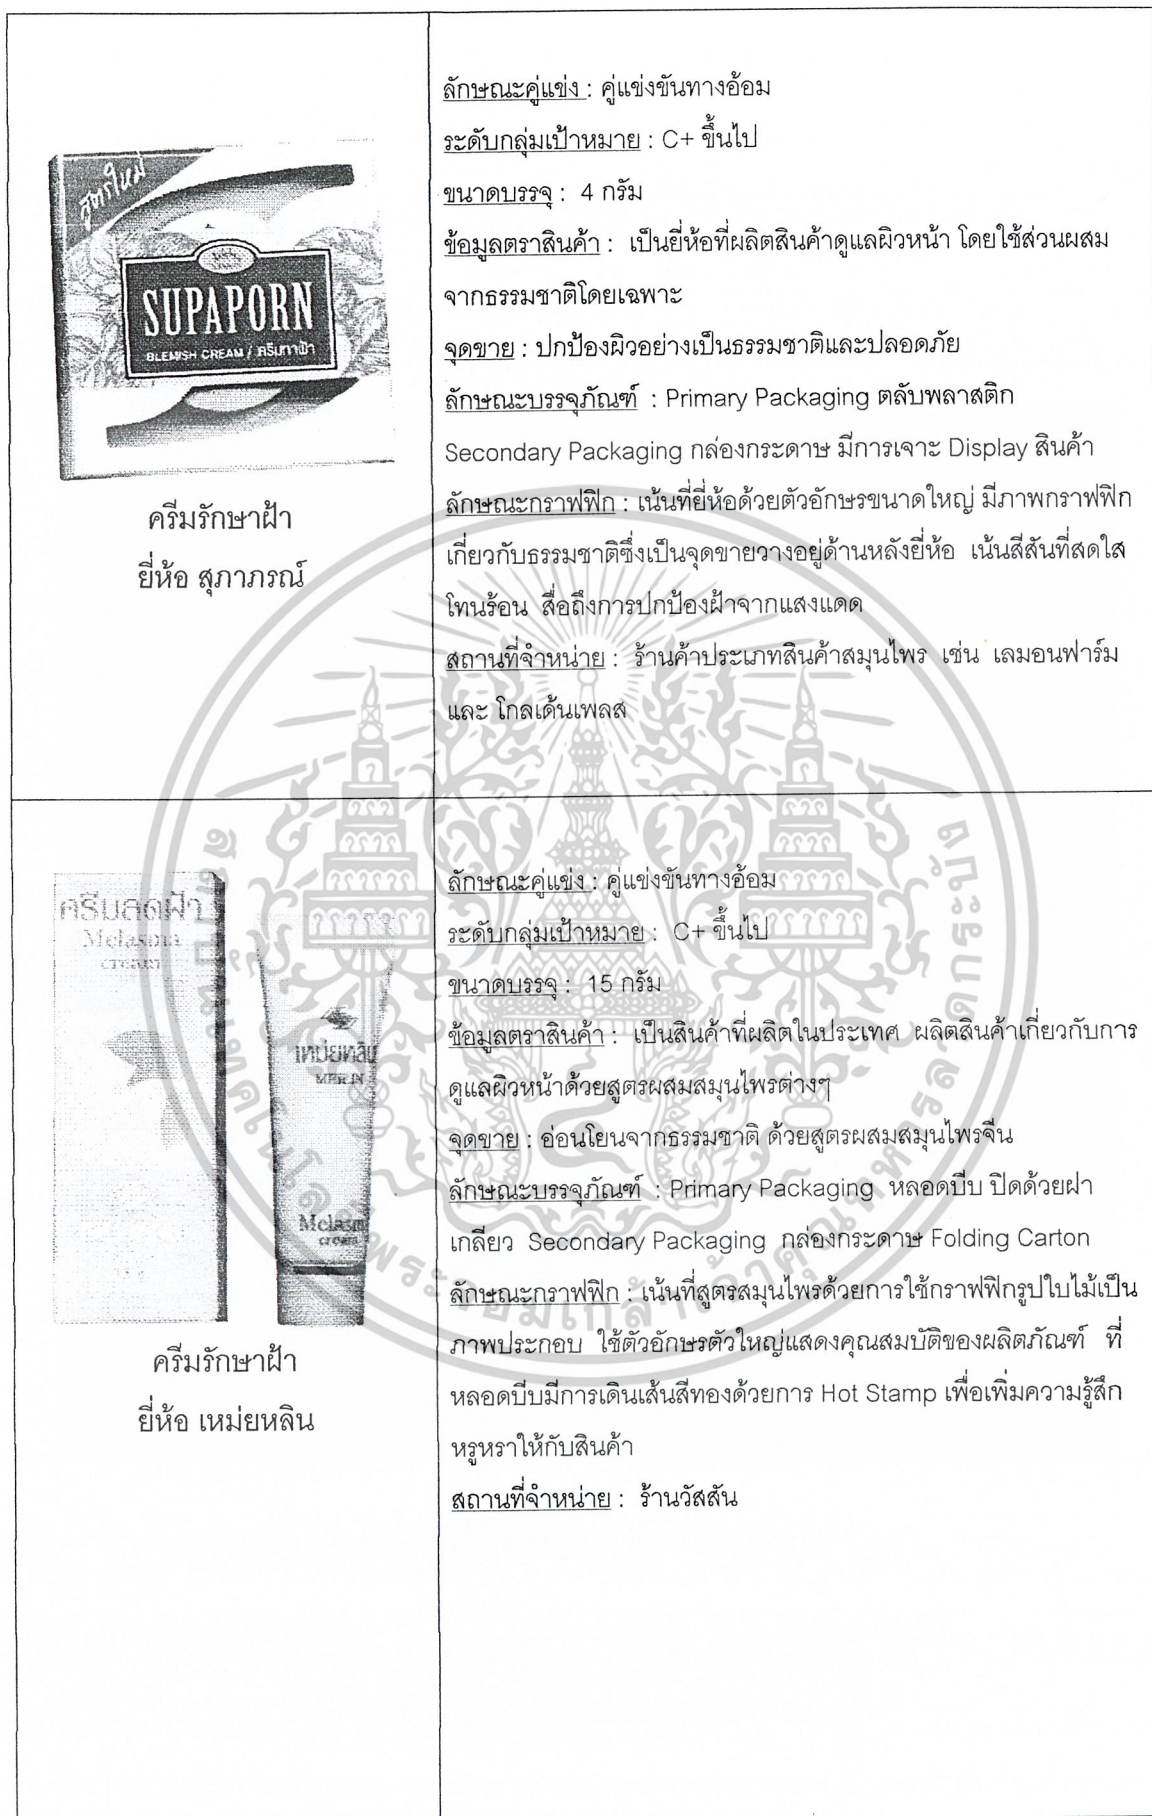 สูตรใหม่
SUPAPORN
BLEMISH CREAM / ครีมทาฝ้า
ครีมรักษาฝ้า
ยี่ห้อ สุภาภรณ์
ลักษณะคู่แข่ง : คู่แข่งขันทางอ้อม
ระดับกลุ่มเป้าหมาย : C+ ขึ้นไป
ขนาดบรรจุ : 4 กรัม
ข้อมูลตราสินค้า : เป็นยี่ห้อที่ผลิตสินค้าดูแลผิวหน้า โดยใช้ส่วนผสม
จากธรรมชาติโดยเฉพาะ
จุดขาย : ปกป้องผิวอย่างเป็นธรรมชาติและปลอดภัย
ลักษณะบรรจุภัณฑ์ : Primary Packaging ตลับพลาสติก
Secondary Packaging กล่องกระดาษ มีการเจาะ Display สินค้า
ลักษณะกราฟฟิก : เน้นที่ยี่ห้อด้วยตัวอักษรขนาดใหญ่ มีภาพกราฟฟิก
เกี่ยวกับธรรมชาติซึ่งเป็นจุดขายวางอยู่ด้านหลังยี่ห้อ เน้นสีสันที่สดใส
โทนร้อน สื่อถึงการปกป้องฝ้าจากแสงแดด
สถานที่จำหน่าย : ร้านค้าประเภทสินค้าสมุนไพร เช่น เลมอนฟาร์ม
และ โกลเด้นเพลส
ครีมลดฝ้า
Melasma
cream
เหม่ยหลิน
MEILIN
Melasma
cream
ครีมรักษาฝ้า
ยี่ห้อ เหม่ยหลิน
ลักษณะคู่แข่ง : คู่แข่งขันทางอ้อม
ระดับกลุ่มเป้าหมาย : C+ ขึ้นไป
ขนาดบรรจุ : 15 กรัม
ข้อมูลตราสินค้า : เป็นสินค้าที่ผลิตในประเทศ ผลิตสินค้าเกี่ยวกับการ
ดูแลผิวหน้าด้วยสูตรผสมสมุนไพรต่างๆ
จุดขาย : อ่อนโยนจากธรรมชาติ ด้วยสูตรผสมสมุนไพรจีน
ลักษณะบรรจุภัณฑ์ : Primary Packaging หลอดบีบ ปิดด้วยฝา
เกลียว Secondary Packaging กล่องกระดาษ Folding Carton
ลักษณะกราฟฟิก : เน้นที่สูตรสมุนไพรด้วยการใช้กราฟฟิกรูปใบไม้เป็น
ภาพประกอบ ใช้ตัวอักษรตัวใหญ่แสดงคุณสมบัติของผลิตภัณฑ์ ที่
หลอดบีบมีการเดินเส้นสีทองด้วยการ Hot Stamp เพื่อเพิ่มความรู้สึก
หรูหราให้กับสินค้า
สถานที่จำหน่าย : ร้านวัสสัน
สถาบันเทคโนโลยีพระจอมเกล้าเจ้าคุณทหารลาดกระบัง